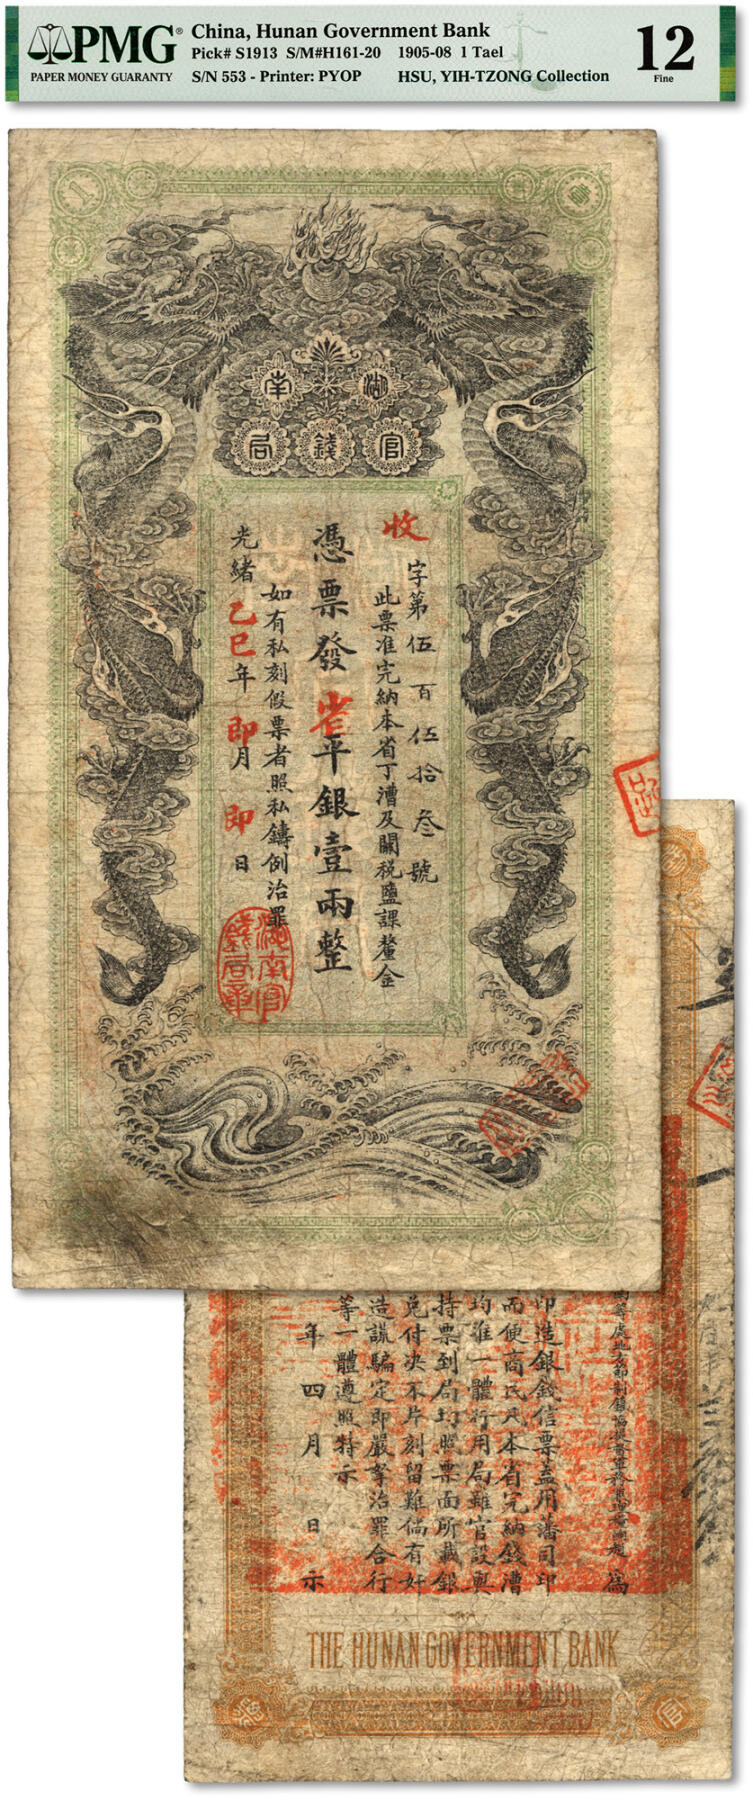 PMG®
PAPER MONEY GUARANTY
China, Hunan Government Bank
Pick# S1913 S/M#H161-20 1905-08 1 Tael
S/N 553 - Printer: PYOP HSU, YIH-TZONG Collection
12
Fine
1
壹
湖南
官錢局
收字第伍百伍拾叁號
此票准完納本省丁漕及關稅鹽課釐金
憑票發省平銀壹兩整
如有私刻假票者照私鑄例治罪
光緒乙巳年即月即日
湖南官錢局章
為
印造銀錢信票蓋用藩司印
而便商民凡本省完納錢漕
均准一體行用局雖官設與
持票到局均照票面所載銀
兌付决不片刻留難倘有奸
造謊騙定即嚴拏治罪合行
等一體遵照特示
年四月日示
THE HUNAN GOVERNMENT BANK
官